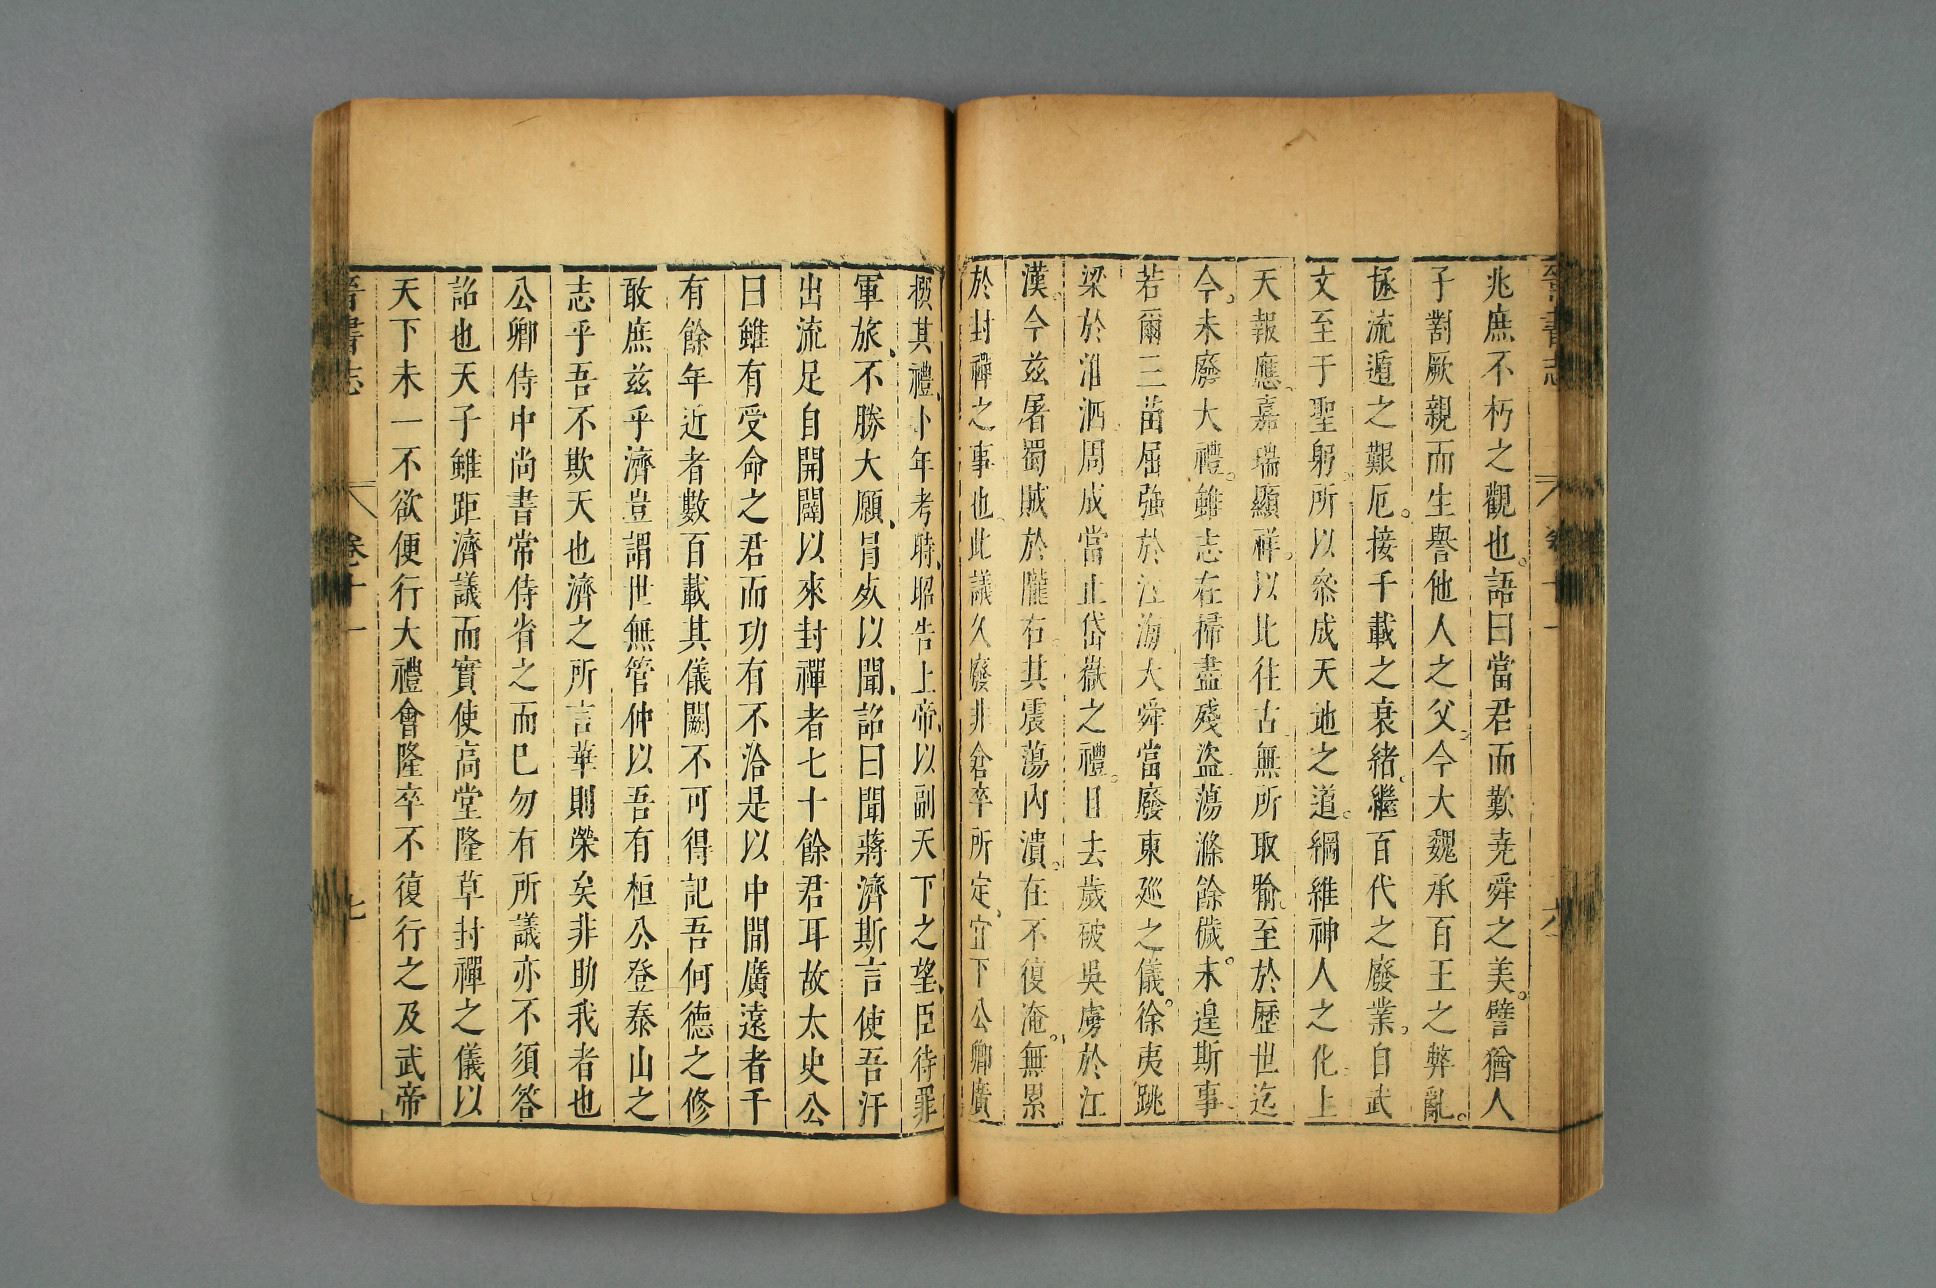 晉書志
卷十一
六
兆庶不朽之觀也。語曰當君而歎堯舜之美。譬猶人
子對厥親而生譽他人之父。今大魏承百王之弊亂。
拯流遁之艱厄。接千載之衰緒。繼百代之廢業。自武
文至于聖躬。所以叅成天地之道。綱維神人之化上
天報應。嘉瑞顯祥。以比往古無所取喻。至於歷世迄
今。未廢大禮。雖志在掃盡殘盜蕩滌餘穢。未遑斯事
若爾三苗屈強於江海。大舜當廢東廵之儀。徐夷跳
梁於淮泗。周成當止岱嶽之禮。且去歲破吳虜於江
漢。今茲屠蜀賊於隴右。其震蕩內潰。在不復淹。無累
於封禪之事也、此議久廢非倉卒所定、宜下公卿廣
撰其禮、卜年考時、昭告上帝、以副天下之望、臣待罪
軍旅、不勝大願、冒歿以聞、詔曰聞蔣濟斯言使吾汗
出流足自開闢以來封禪者七十餘君耳故太史公
曰雖有受命之君而功有不洽是以中間廣遠者千
有餘年近者數百載其儀闕不可得記吾何德之修
敢庶茲乎濟豈謂世無管仲以吾有桓公登泰山之
志乎吾不欺天也濟之所言華則榮矣非助我者也
公卿侍中尚書常侍省之而已勿有所議亦不須答
詔也天子雖距濟議而實使高堂隆草封禪之儀以
天下未一不欲便行大禮會隆卒不復行之及武帝
晉書志
卷十一
七